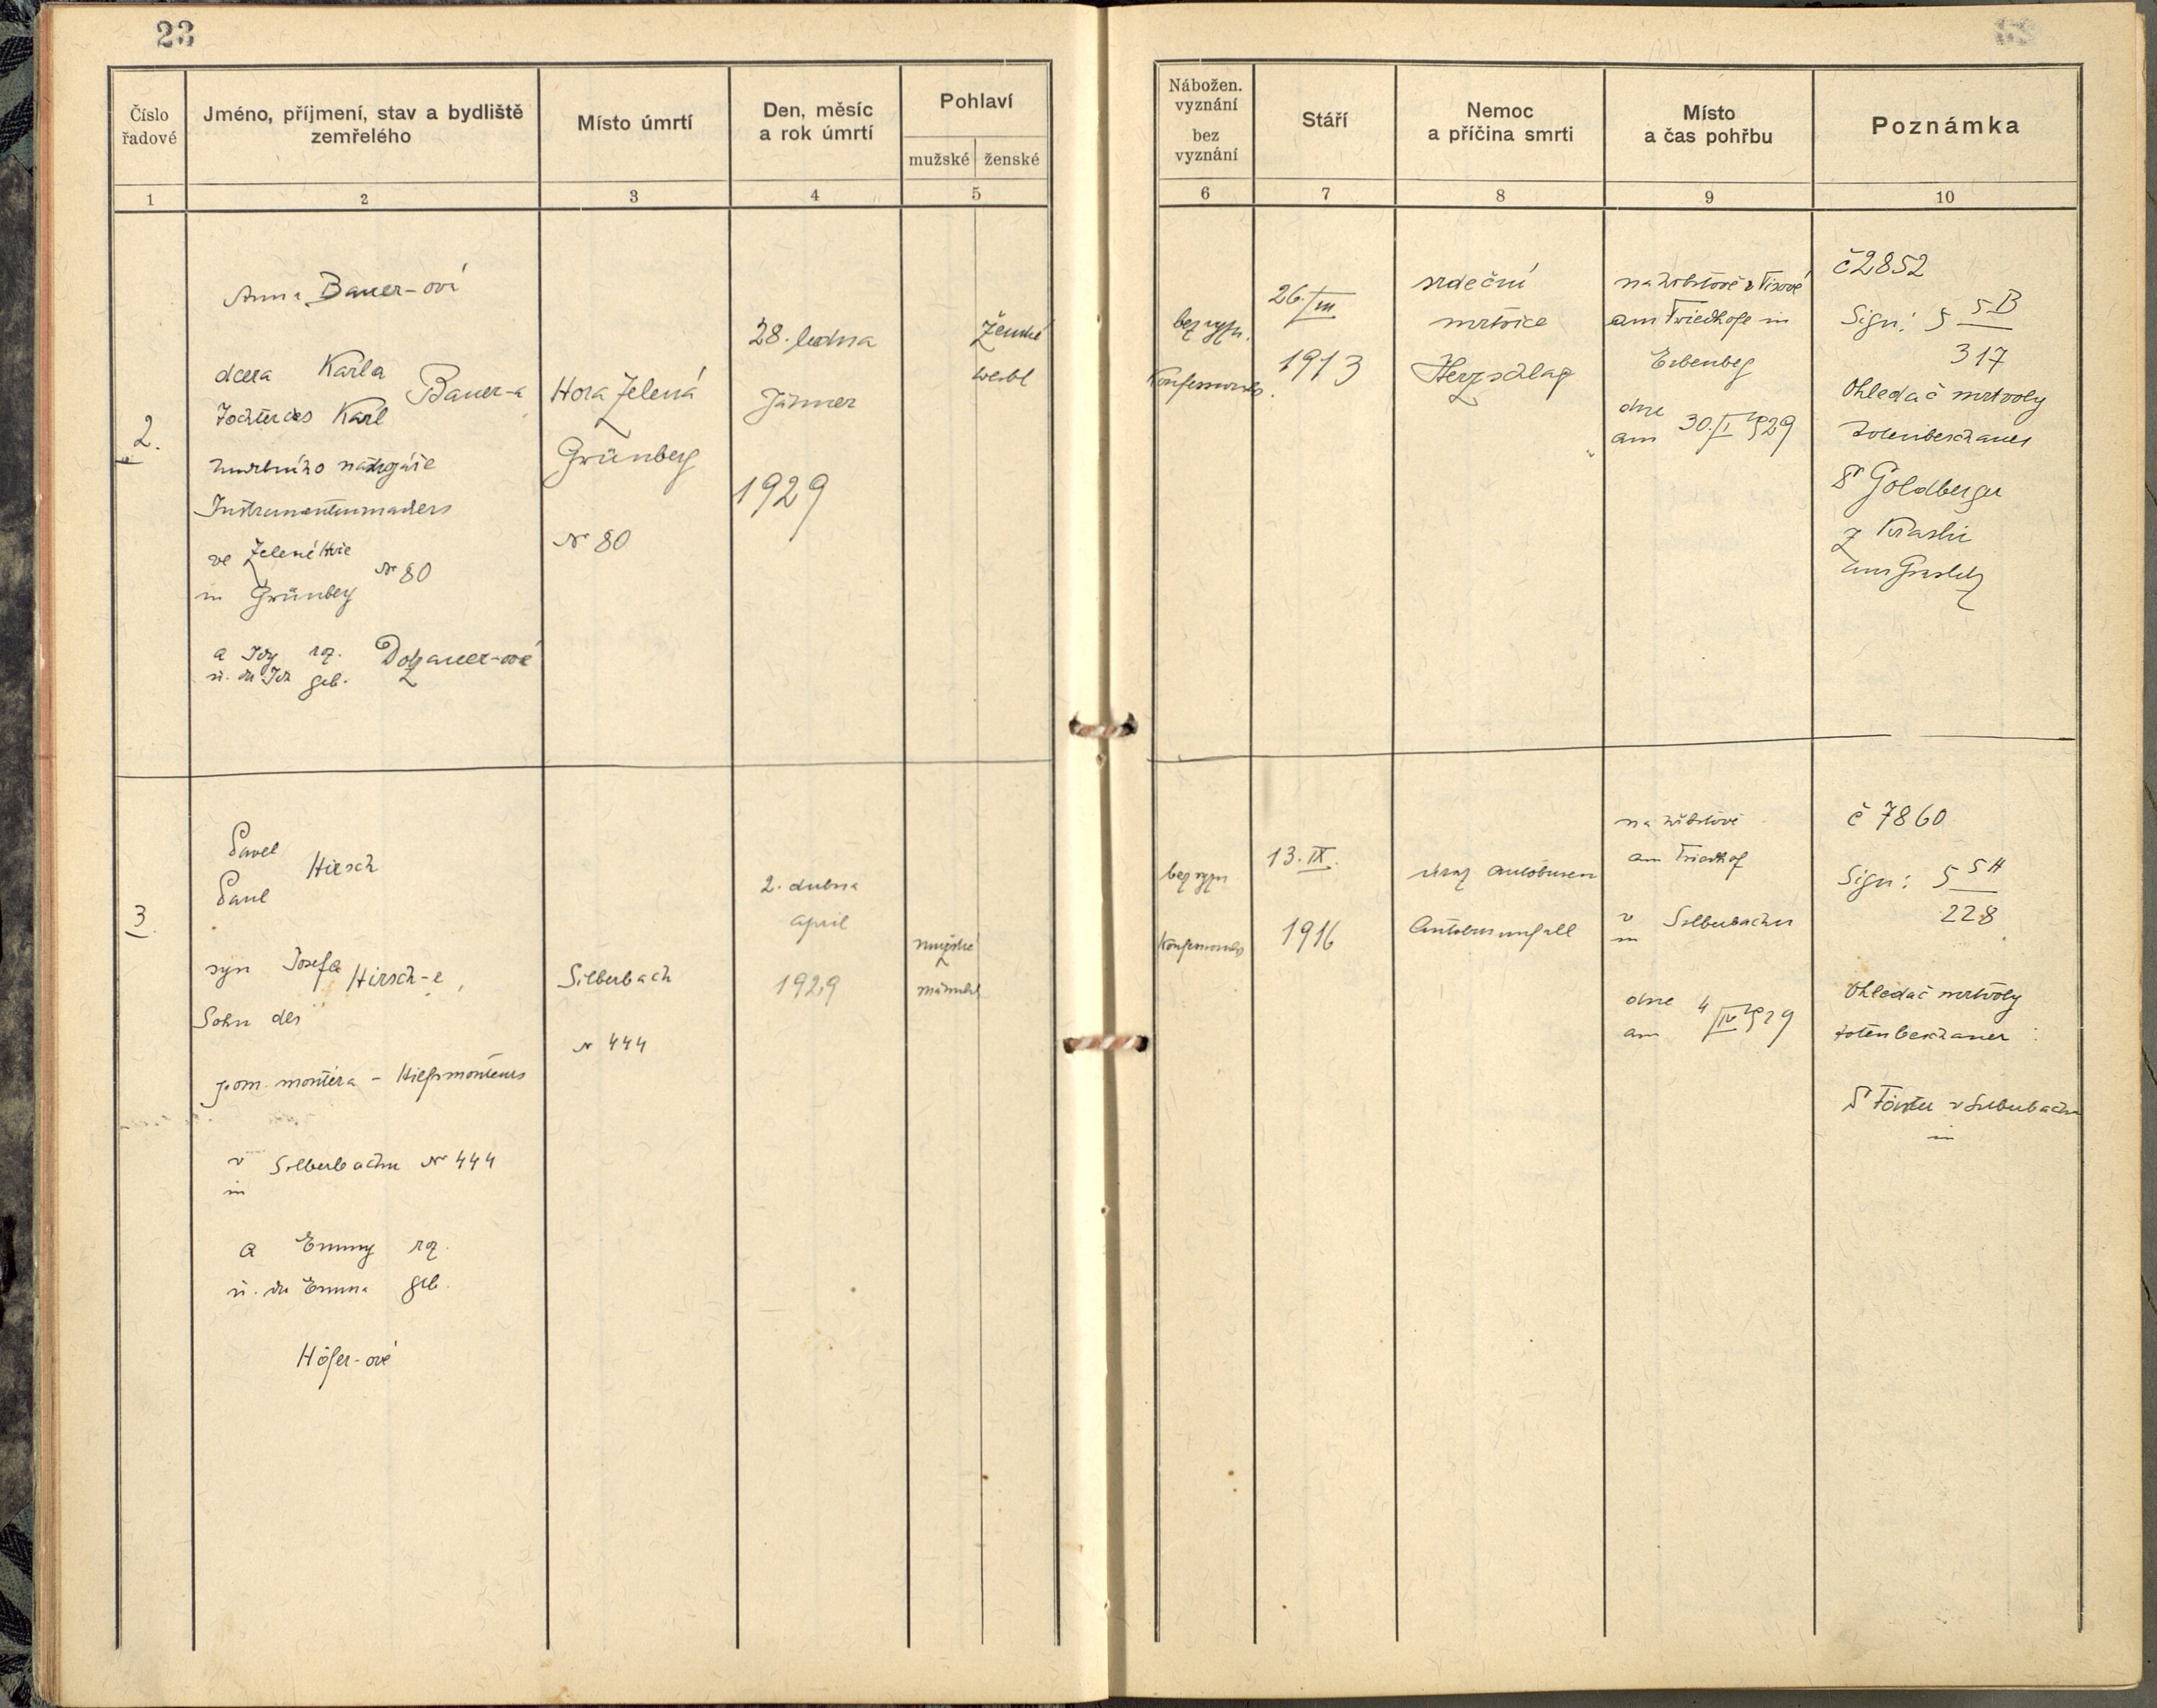 23
Číslo
řadové
Jméno, příjmení, stav a bydliště
zemřelého
Místo úmrtí
Den, měsíc
a rok úmrtí
Pohlaví
mužské ženské
1 2 3 4 5
2.
Anna Bauer-ová
dcera Karla
Bauer-a
Tochter des Karl
Instrumentenmachers
ve Zelené Hoře
Nr 80
in Grünberg
a Idy roz.
Dozauer-ové
u. der Ida geb.
Hora Zelená
Grünberg
Nr 80
28. ledna
Jänner
1929
ženské
weibl
3.
Pavel
Hirsch
Paul
syn Josefa
Hirsch-e,
Sohn des
pom. montéra - Hilfsmonteurs
v Silberbachu Nr 444
in
a Emmy roz.
u. der Emma geb.
Höfer-ové
Silberbach
Nr 444
2. dubna
April
1929
mužské
männl
Nábožen.
vyznání
bez
vyznání
Stáří
Nemoc
a příčina smrti
Místo
a čas pohřbu
Poznámka
6 7 8 9 10
bez vyzn.
Konfessionslos
26./III
1913
srdeční
mrtvice
Herzschlag
na hřbitově v Tisové
am Friedhofe in
Eibenberg
dne
30./I 1929
am
č 2852
Sign: 5 5B
317
Ohledač mrtvoly
Totenbeschauer
Dr Goldberger
z Kraslic
aus Graslitz
bez vyzn
Konfessionslos
13. IX.
1916
úraz autobusem
Autobusunfall
na hřbitově
am Friedhof
v Silberbachu
in
dne 4
/IV 1929
am
č 7860
Sign: 5 5H
228
Ohledač mrtvoly
Totenbeschauer:
v Silberbachu
in